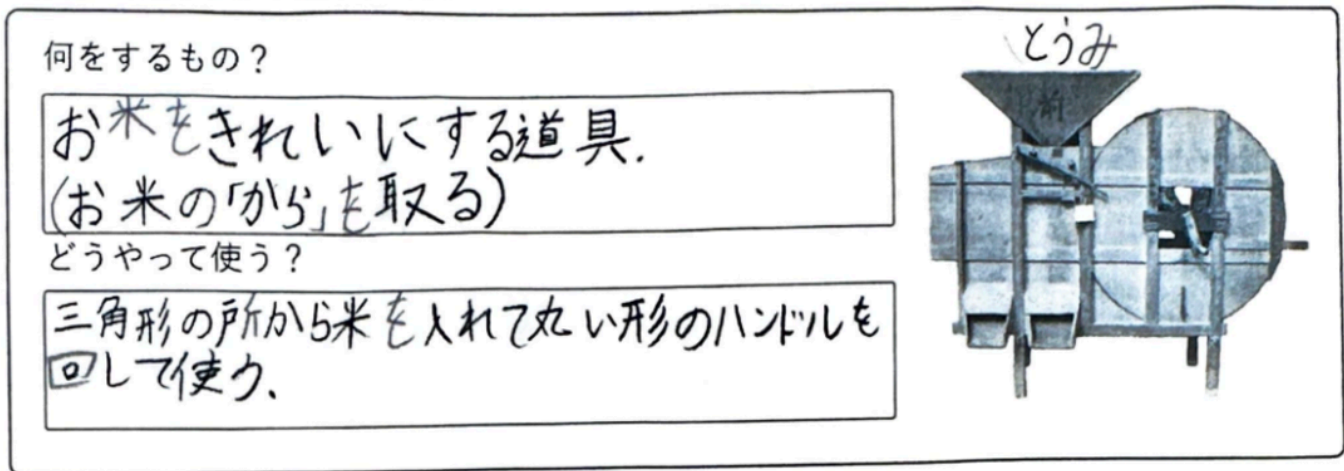 何をするもの？
お米をきれいにする道具.
(お米の「から」を取る)
どうやって使う？
三角形の所から米を入れて丸い形のハンドルを
回して使う.
とうみ